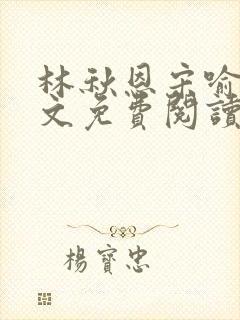 林秋恩宋喻
文免費閱讀
楊寶忠